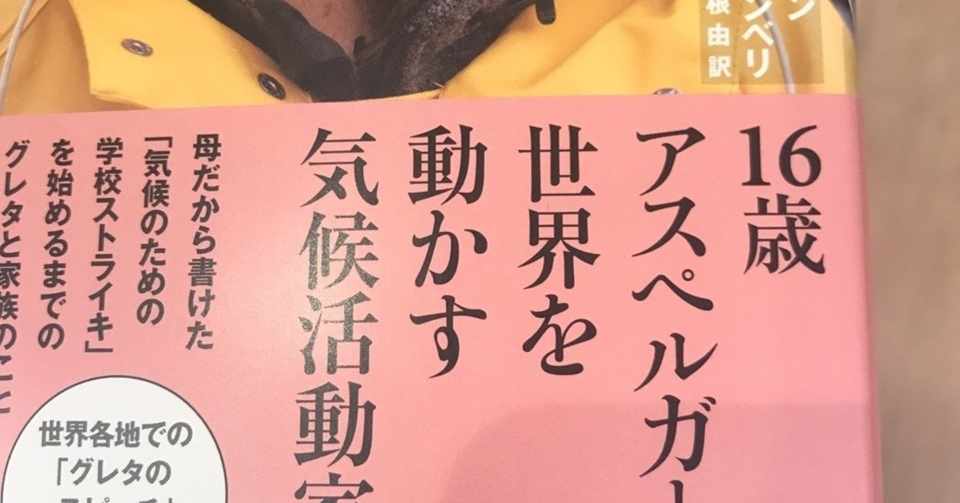 ン
ンベリ
根由訳
16歳
アスペルガー
世界を
動かす
気候活動家
母だから書けた
「気候のための
学校ストライキ」
を始めるまでの
グレタと家族のこと
世界各地での
「グレタの
スピーチ」